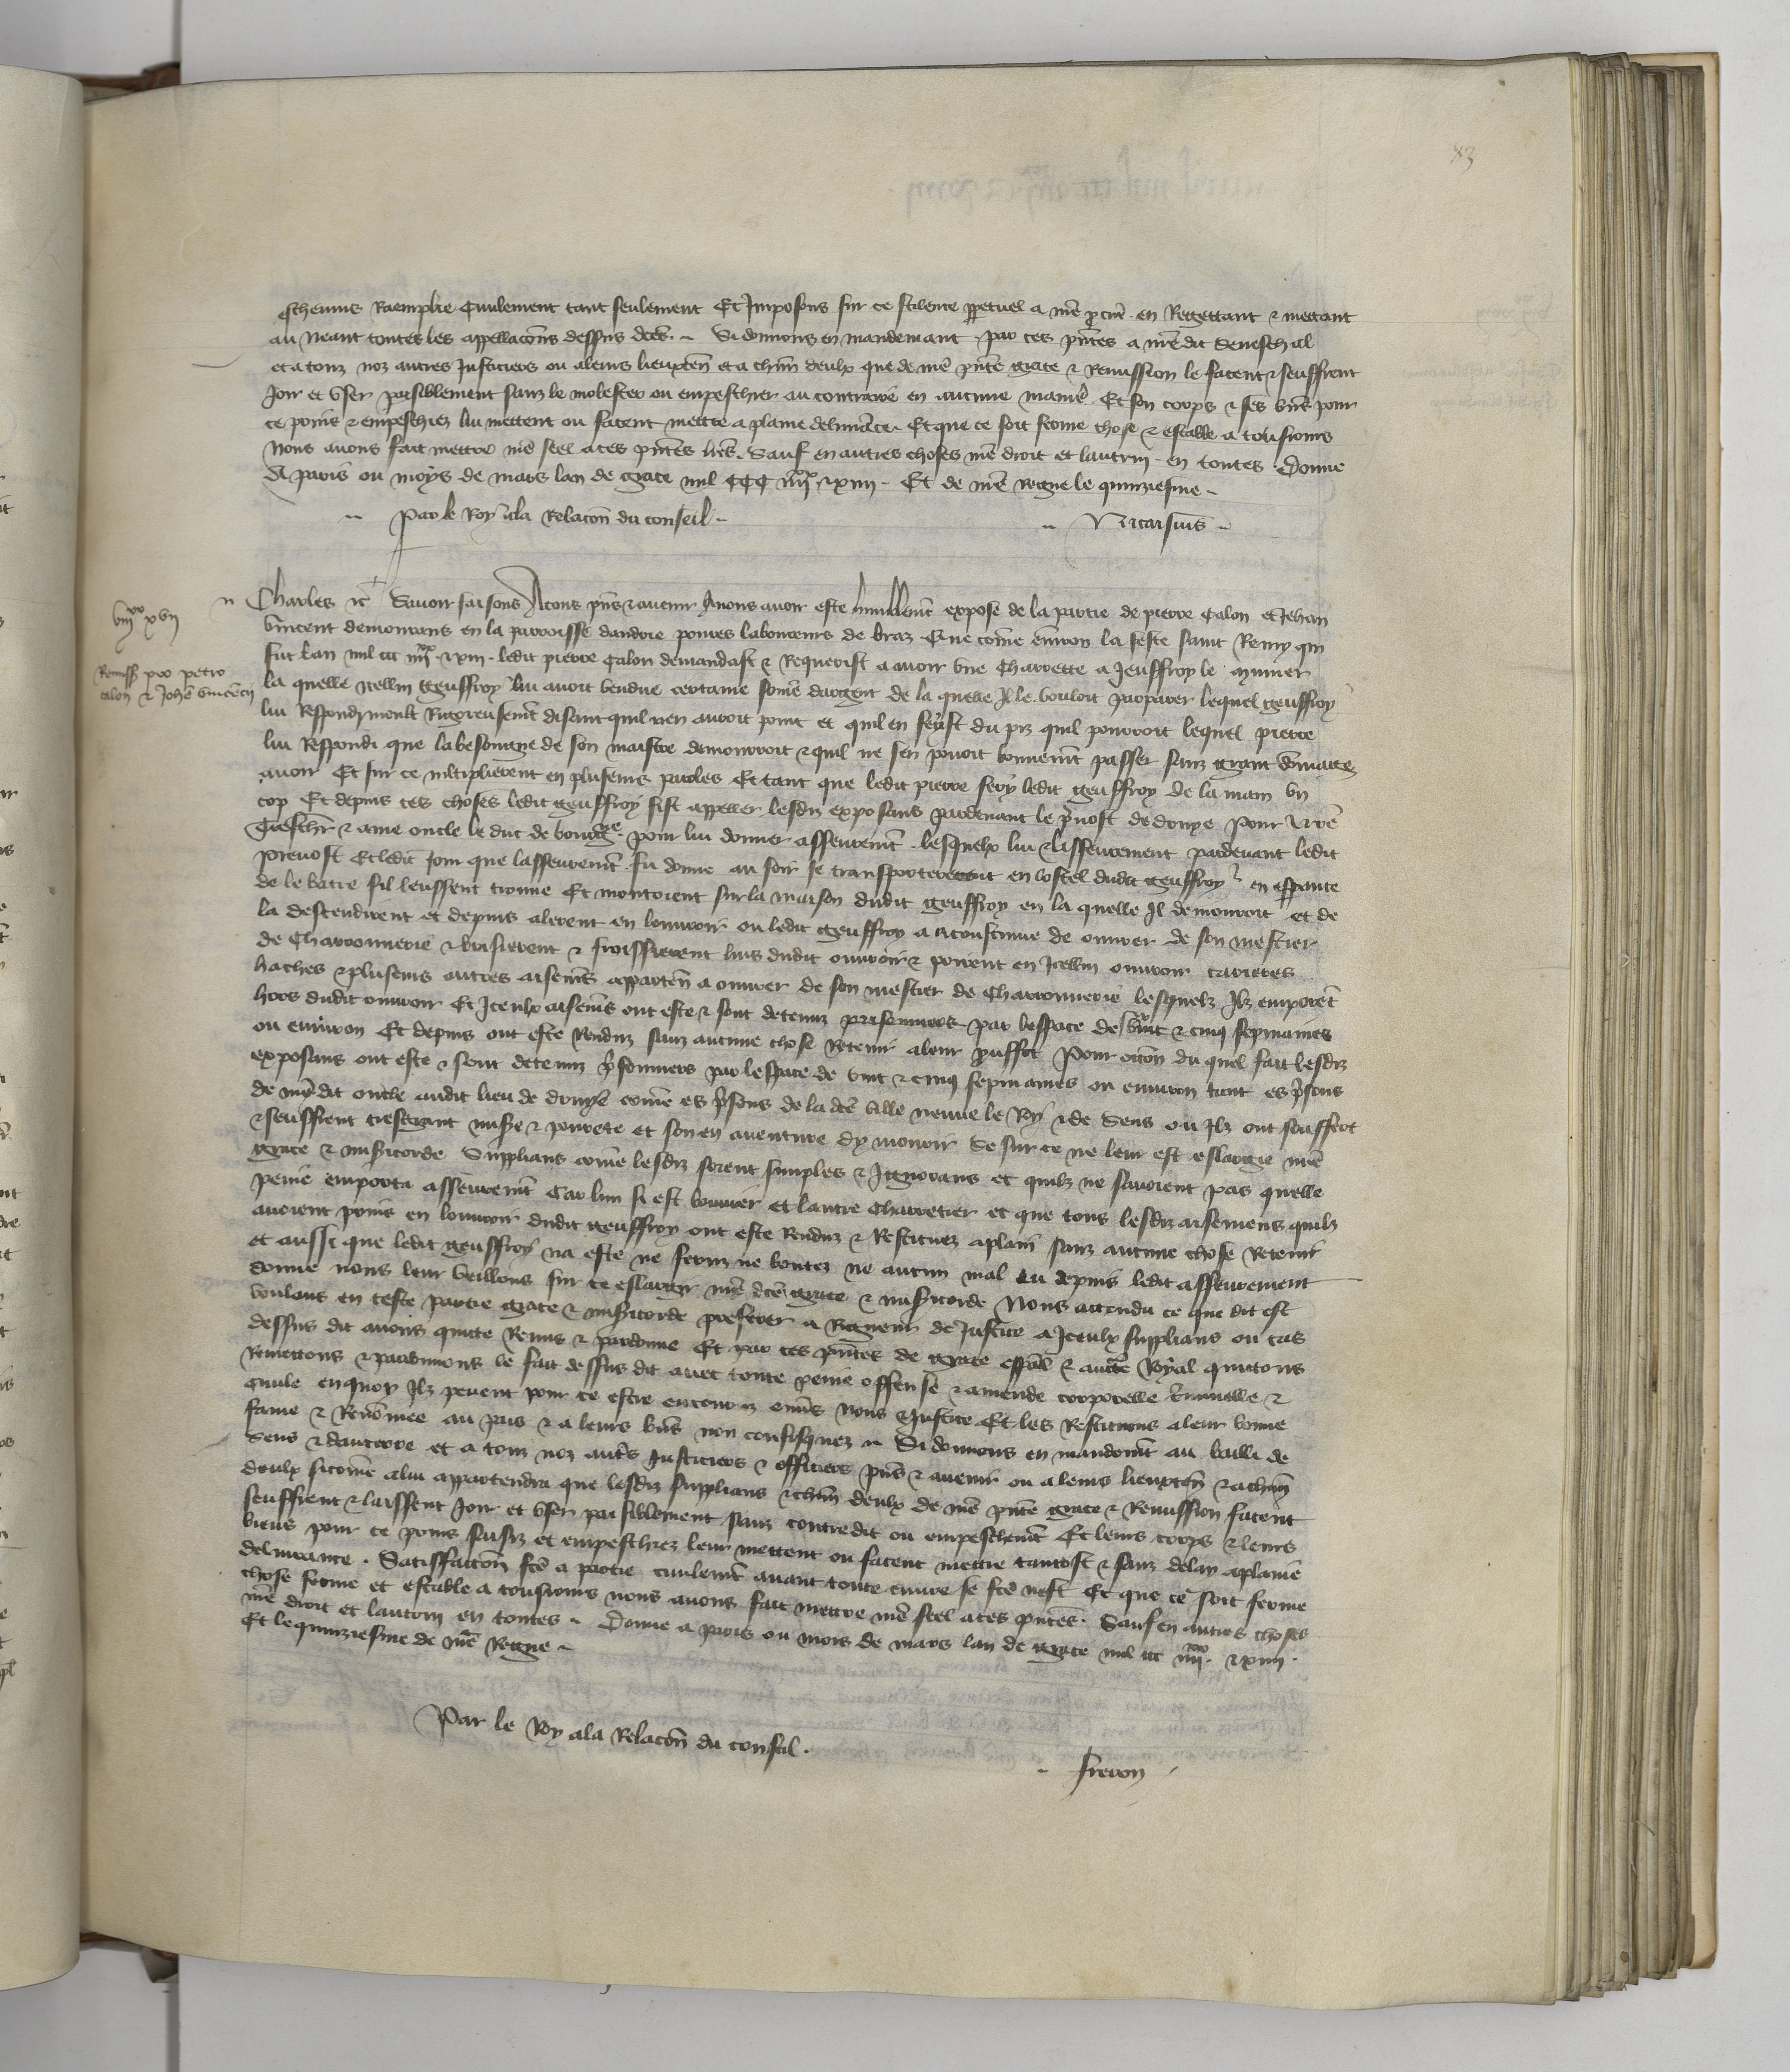 83
eschevins Raemplre Civilement tant seulement Et Imposons sur ce silence ppetuel a nrẽ pcur̃ en Regettant & mettant
au neant toutes les appellacõns dessus dcẽs. Si donnons en mandemant par ces pñtes a nrẽ dit Seneschal
et a touz noz autres Justiciers ou a leurs lieuxten̄ et a chũn deulx que de nrẽ pñte grace & Remission le facent & seuffrent
Joir et user paisiblement sanz le molester ou empeschier au contraire en aucune maniẽ Et son corps & ses biẽs pour
ce prins & empeschiez lui mettent ou facent mettre a plaine delivrãce. Et que ce soit ferme chose & estable a tousiours
Nous avons fait mettre nrẽ seel a ces pñtes lrẽs. Sauf en autres choses nrẽ droit et lautruy en toutes. Donne
A paris ou moys de mars lan de grace mil CCC iiii^xx & xiiii. Et de nrẽ Regne le quinziesme
Par le Roy a la Relacõn du conseil
Nicasius
viii^xx xvii
Remissio pro petro
calon & Johẽ vincẽcii
Charles &c Savoir faisons A tous pñs & avenir A nous avoir este humblemt expose de la partie de pierre Calon et Jehan
Vincent demourans en la parroisse dandrie povres laboureurs de braz Que cõme environ la feste saint Remy qui
fut lan mil ccc iiii^xx & xiii ledit pierre Calon demandast & Requerist a avoir une Charrette a Jeuffroy le
la quelle icellui geuffroy lui avoit vendue certaine sõme dargent de la quelle Il le vouloit paier lequel geuffroy
lui Respondy moult Rigoreusemt disant quil nen auroit point et quil en feist du piz quil pourroit lequel pierre
lui Respondi que la besoingne de son maistre demourroit & quil ne sen povoit bonnemt passer sanz grant dõmage
avoir Et sur ce mltiplierent en pluseurs paroles Et tant que ledit pierre fery ledit geuffroy de la main un
cop Et depuis ces choses ledit geuffroy fist appeller lesdiz exposans pardevant le pvost de druye pour nrẽ
treschr̃ & ame oncle le duc de bourggne pour lui donner asseuremt. lesquelx lui lasseurement pardevant ledit
prevost Et ledit jour que lasseuremt fu donne au soir se transporterent en lostel dudit geuffroy en esperance
de le batre sil leussent trouve Et monterent sur la maison dudit geuffroy en la quelle Il demouroit et de
la descendirent et depuis alerent en louvroir ou ledit geuffroy a acoustume de ouvrer de son mestier
de Charronnerie & briserent & froissierent luis dudit ouvroir & prirent en Icellui ouvroir tarieres
haches & pluseurs autres aisemẽs apparten̄ a ouvrer de son mestier de Charronnerie lesquelz Ilz emporẽt
hors dudit ouvroir Et Iceulx aisemẽs ont este & sont detenuz prisonniers par lespace de vint & cinq sepmaines
ou environ Et depuis ont este Renduz sanz aucune chose Retenir a leur prouffit Pour occõn du quel fait lesdiz
exposans ont este & sont detenuz psonniers par lespace de vint & cinq sepmaines ou environ tant es psons
de nrẽdit oncle audit lieu de druye cõme es psons de la dcẽ ville neuve le Roy & de Sens ou Ilz ont souffert
& seuffrent tresgrant misere & povrete et sont en aventure dy mourir Se sur ce ne leur est eslargie nrẽ
grace & misericorde Supplians cõme lesdiz soient simples & Ignorans et quilz ne savoient pas quelle
peine emporta asseuremt Car lun si est bouvier et lautre charretier et que tous lesdiz aisemens quilz
avoient prins en louvroir dudit geuffroy ont este Renduz & Restituez aplain sanz aucune chose Retenir
et aussi que ledit geuffroy na este ne feruz ne boutez ne aucun mal eu depuis ledit asseurement
donne nous leur veillons sur ce eslargir nrẽ dcẽ grace & misericorde Nous attendu ce que dit est
voulans en ceste partie grace & misericorde preferer a Rigueur de Justice A Iceulx supplians ou cas
dessus dit avons quicte Remis & pardonne Et par ces pñtes de grace espãl & aucte Royal quictons
Remettons & pardonnons le fait dessus dit avec toute peine offense & amende corporelle Criminelle &
civile en quoy Ilz pevent pour ce estre encouruz envs nous & Justice Et les Restituons a leur bonne
fame & Renõmee au pais & a leurs biẽs non confisquez Si donnons en mandemt au bailli de
Sens & daucerre et a touz noz autrs Justiciers & officiers pñs & avenir ou a leurs lieuxten̄ & a chũn
deulx sicõme a lui appartendra que lesdiz supplians & chũn deulx de nrẽ pñte grace & Remission facent
seuffrent & laissent Joir et user paisiblement sanz contredit ou empeschemt Et leurs corps & leurs
biens pour ce prins saisiz et empeschiez leur mettent ou facent mettre tantost & sanz delay a plaine
delivrance. Satisfaccõn fcẽ a partie civilemt avant toute euvre se fcẽ nest Et que ce soit ferme
chose ferme et estable a tousiours nous avons fait mettre nrẽ seel a ces pñtes. Sauf en autres choses
nrẽ droit et lautruy en toutes Donne a paris ou mois de mars lan de grace mil ccc iiii^xx & xiiii.
Et le quinziesme de nrẽ Regne
Par le Roy a la Relacõn du conseil.
Freron